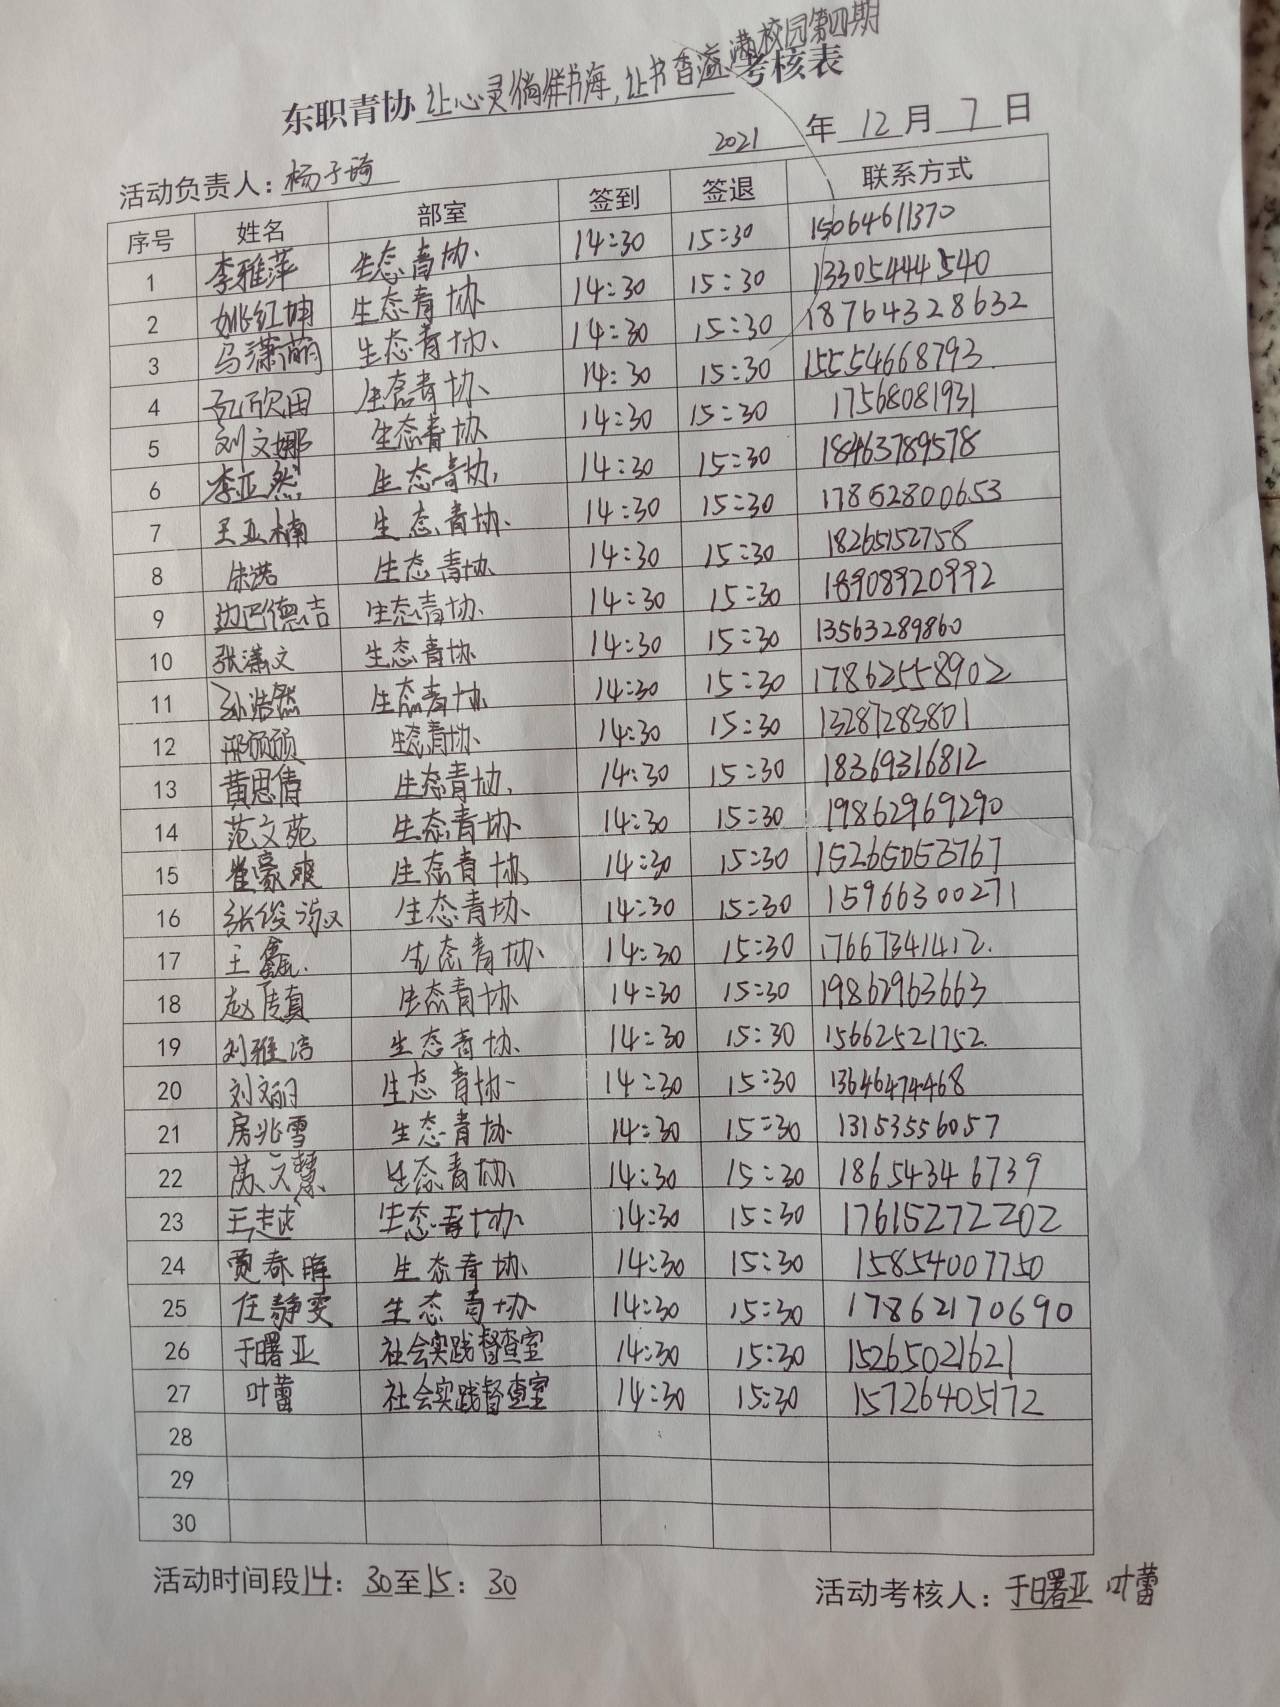 东职青协让心灵徜徉书海,让书香溢满校园第四期考核表
2021年12月7日
活动负责人:杨子琦
序号 姓名 部室 签到 签退 联系方式
1 李雅萍 生态青协 14:30 15:30 15064611370
2 姚红坤 生态青协 14:30 15:30 13305444540
3 马潇萌 生态青协 14:30 15:30 18764328632
4 欣田 生态青协 14:30 15:30 15554668793
5 刘文娜 生态青协 14:30 15:30 17568081931
6 李亚然 生态青协 14:30 15:30 18463789578
7 王亚楠 生态青协 14:30 15:30 17852800653
8 朱诺 生态青协 14:30 15:30 18265152758
9 边巴德吉 生态青协 14:30 15:30 18908920992
10 张潇文 生态青协 14:30 15:30 13563289860
11 孙浩然 生态青协 14:30 15:30 17862558902
12 邢硕硕 生态青协 14:30 15:30 13287283801
13 黄思倩 生态青协 14:30 15:30 18369316812
14 范文苑 生态青协 14:30 15:30 19862969290
15 崔豪爽 生态青协 14:30 15:30 15265053767
16 张俊 生态青协 14:30 15:30 15966300271
17 王鑫 生态青协 14:30 15:30 17667341412
18 赵传真 生态青协 14:30 15:30 19862963663
19 刘雅洁 生态青协 14:30 15:30 15662521752
20 刘文 生态青协 14:30 15:30 13646474468
21 房兆雪 生态青协 14:30 15:30 13153556057
22 苏文慧 生态青协 14:30 15:30 18654346739
23 王 生态青协 14:30 15:30 17615272202
24 贾春晖 生态青协 14:30 15:30 15854007750
25 任静雯 生态青协 14:30 15:30 17862170690
26 于曙亚 社会实践督查室 14:30 15:30 15265021621
27 叶蕾 社会实践督查室 14:30 15:30 15726405172
28
29
30
活动时间段14:30至15:30 活动考核人:于曙亚 叶蕾